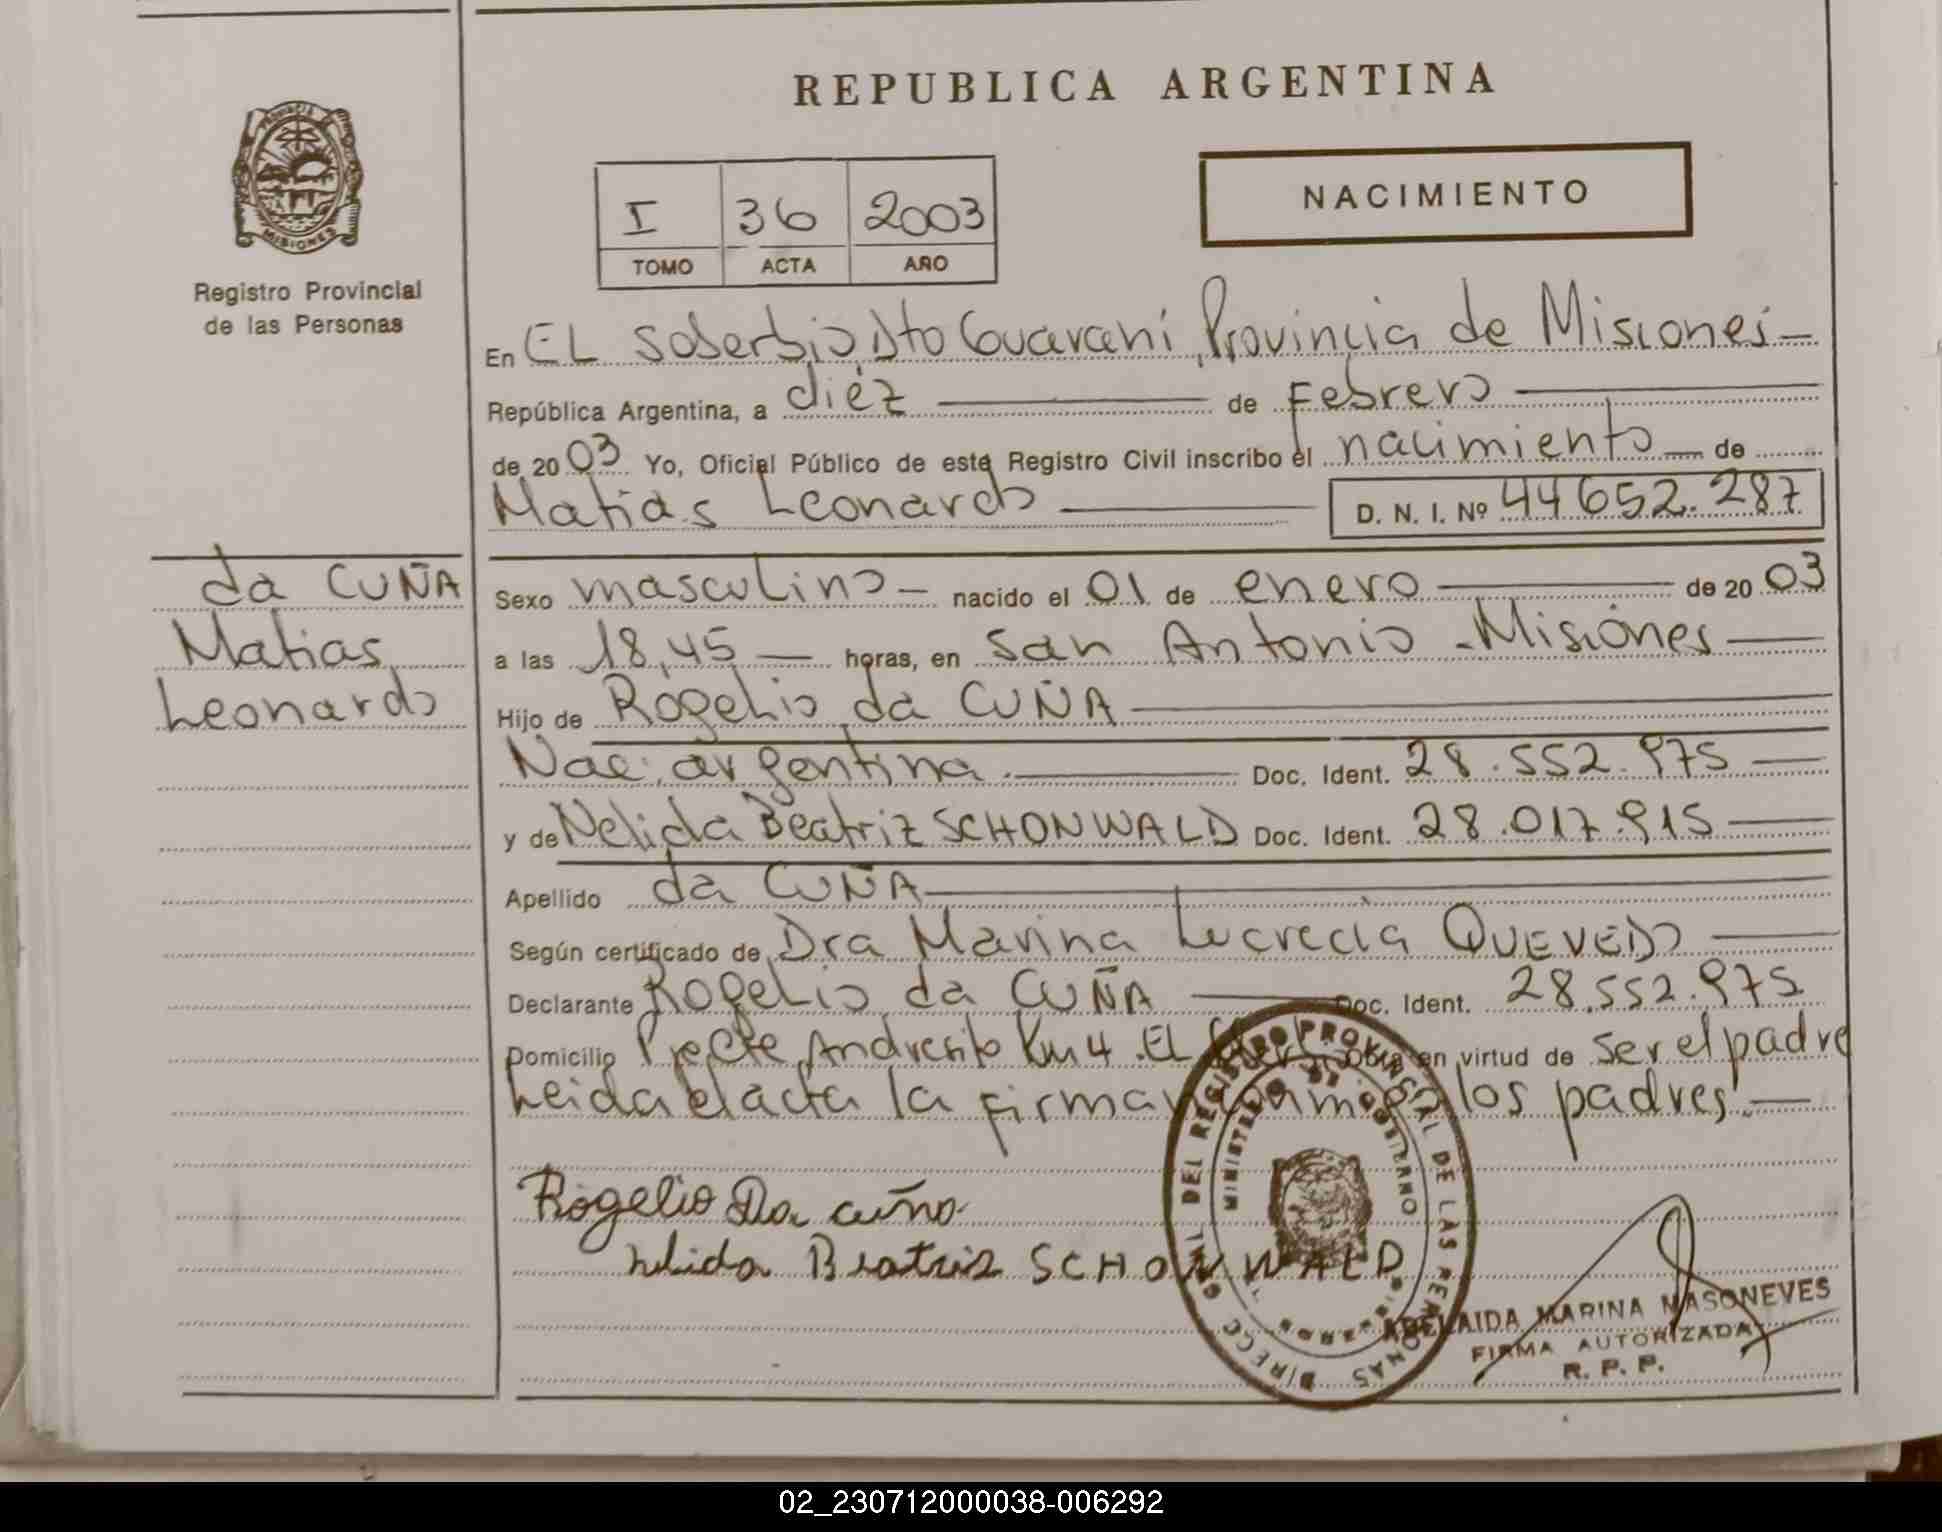 REPUBLICA ARGENTINA
PROVINCIA DE
MISIONES
Registro Provincial
de las Personas
I 36 2003
TOMO ACTA AÑO
NACIMIENTO
En EL Soberbio, Dto Guaraní, Provincia de Misiones
República Argentina, a diéz de Febrero
de 2003 Yo, Oficial Público de este Registro Civil inscribo el nacimiento de
Matias Leonardo D. N. I. Nº 44652.287
da CUÑA
Matias
Leonardo
Sexo masculino nacido el 01 de enero de 2003
a las 18,45 horas, en San Antonio - Misiones
Hijo de Rogelio da CUÑA
Nac. argentina Doc. Ident. 28.552.975
y de Nelida Beatriz SCHONWALD Doc. Ident. 28.017.915
Apellido da CUÑA
Según certificado de Dra Marina Lucrecia QUEVEDO
Declarante Rogelio da CUÑA Doc. Ident. 28.552.975
Domicilio Andresito Km 4. EL Obra en virtud de ser el padre
Leida el acta la firman los padres
Rogelio Da cuña
nelida Beatriz SCHONWALD
DIRECC. GRAL. DEL REGISTRO PROVINCIAL DE LAS PERSONAS
MINISTERIO DE GOBIERNO
ADELAIDA MARINA MASONEVES
FIRMA AUTORIZADA
R. P. P.
02_230712000038-006292